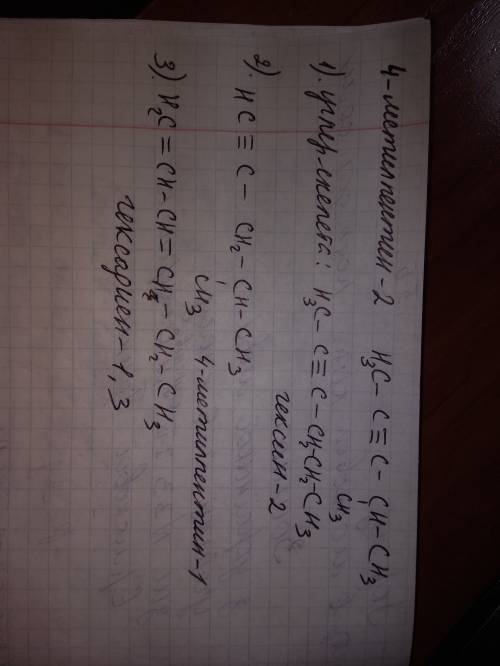 4-метилпентин-2 H₃C-C≡C-CH-CH₃
CH₃
1). углер. скелета: H₃C-C≡C-CH₂-CH₂-CH₃
гексин-2
2). HC≡C-CH₂-CH-CH₃
CH₃ 4-метилпентин-1
3). H₂C=CH-CH=CH-CH₂-CH₃
гексадиен-1,3